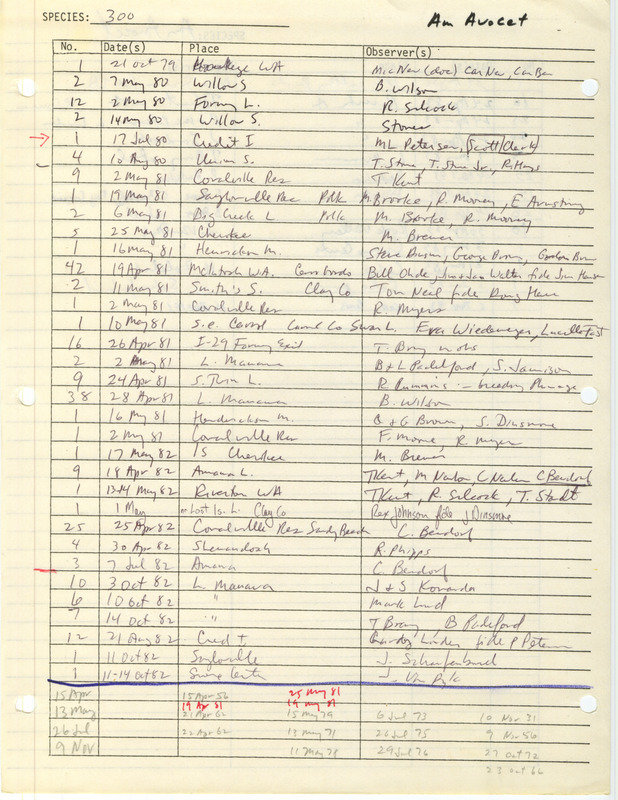 SPECIES: 300
Am Avocet
No. Date(s) Place Observer(s)
1 21 Oct 79 WA
2 7 May 80 Willow S B. Wilson
12 2 May 80 Forney L. R. Silcock
2 14 May 80 Willow S. Stone
1 17 Jul 80 Credit I ML Petersen, Scott/Clark
4 10 Aug 80 Union S. T. Stone, T. Stone Jr, R. Hays
9 2 May 81 Coralville Res T. Kent
1 19 May 81 Saylorville Res Polk M. Brooke, R. Mooney, E Armstrong
2 6 May 81 Big Creek L Polk M. Brooke, R. Mooney
5 25 May 81 Cherokee M. Brewer
1 16 May 81 Hendrickson M. Steve Dinsmore, George Brown, Gordon Brown
42 19 Apr 81 McIntosh W.A. Cerro Gordo Bill Ohde, Jim & Jan Walter fide Jim Hansen
2 11 May 81 Smith's S. Clay Co Tom Neal fide Doug Harr
1 2 May 81 Coralville Res R. Myers
1 10 May 81 s.e. Carroll Carroll Co Swan L. Eva Wiedemeyer, Lucille Fast
16 26 Apr 81 I-29 Forney Exit T. Bray m obs
2 2 May 81 L. Manawa B & L Padelford, S. Jamison
9 24 Apr 81 S. Twin L. R Cummins - breeding Plumage
38 28 Apr 81 L. Manawa B. Wilson
1 16 May 81 Hendrickson M. G & G Brown, S. Dinsmore
1 2 May 81 Coralville Res F. Moore, R. Myers
1 17 May 82 IS Cherokee M. Brewer
9 18 Apr 82 Amana L. TKent, M Newlon, C Newlon C Bendorf
1 13-14 May 82 Riverton WA TKent, R. Silcock, T. Staudt
1 1 May Lost Is. L. Clay Co Rex Johnson fide J Dinsmore
25 25 Apr 82 Coralville Res Sandy Beach C. Bendorf
4 30 Apr 82 Shenandoah R. Phipps
3 7 Jul 82 Amana C. Bendorf
10 3 Oct 82 L. Manawa J & S Kovanda
6 10 Oct 82 " Mark Lund
7 14 Oct 82 " T Bray, B Padelford
12 21 Aug 82 Credit I. Linden fide P Petersen
1 11 Oct 82 Saylorville J.
1 11-14 Oct 82 J. Van Dyk
15 Apr 15 Apr 56 25 May 81
13 May 19 Apr 81 19 May 81
21 Apr 62 15 May 79 6 Jul 73 10 Nov 31
26 Jul 22 Apr 62 13 May 71 26 Jul 75 9 Nov 56
9 Nov 11 May 78 29 Jul 76 27 Oct 72
23 Oct 66